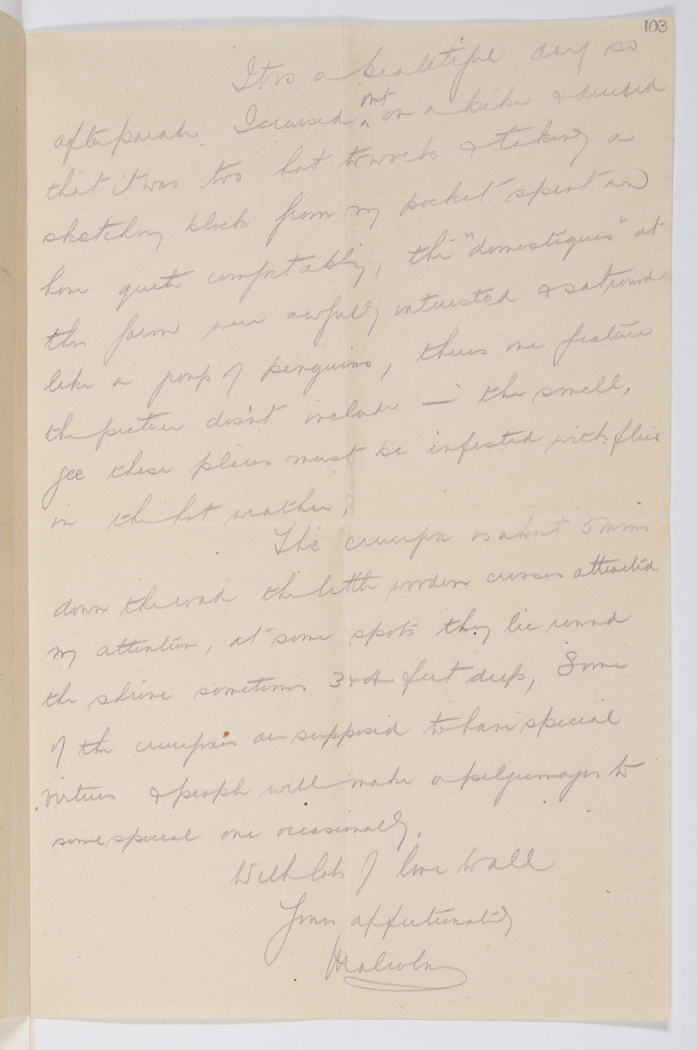 103
It was a beautiful day so
after parade I cruised out on a bike & decided
that it was too hot to work & taking a
sketching block from my pocket spent an
hour quite comfortably, the "domestiques" at
the farm were awfully interested & sat round
like a group of penguins, theres one feature
the picture doesn't include — the smell,
gee these places must be infested with flies
in the hot weather.
The crucifix is about 5 mins
down the road the little wooden crosses attracted
my attention, at some spots they lie round
the shrine sometimes 3 or 4 feet deep, Some
of the crucifixes are supposed to have special
virtues & people will make a pilgrimage to
some special one occasionally.
With lots of love to all
Yours affectionately
Malcolm